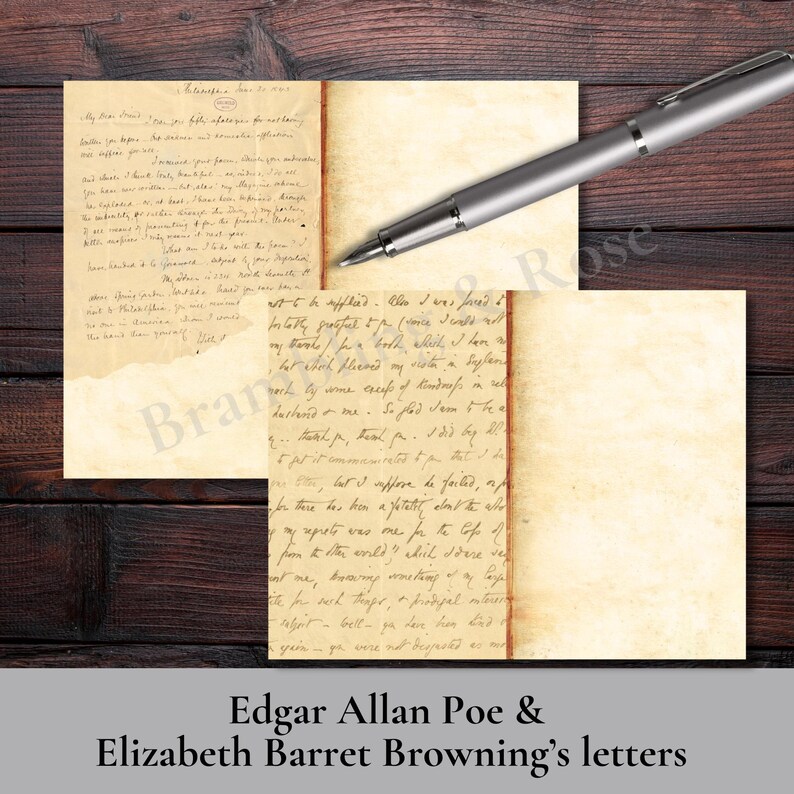 Philadelphia June 20. 1843
My Dear Friend, I owe you fifty apologies for not having
written you before — but sickness and domestic affliction
will suffice for all.
I received your poem, which you undervalue,
and which I think truly beautiful — as, indeed, I do all
you have ever written — but, alas! my Magazine scheme
has exploded — or, at least, I have been deprived, through
the imbecility, or rather through the idiocy of my partner,
of all means of prosecuting it for the present. Under
better auspices I may resume it next year.
What am I to do with the poem? I
have handed it to Griswold, subject to your disposition.
My address is 234 North Seventh St
above Spring Garden, West Side. Should you ever pay a
visit to Philadelphia, you will remember
no one in America whom I would
the hand than yourself.
With
not to be supplied — Also I was forced to
grateful to you (since I could not
my thanks) for a book which I have no
, but which pleased my sister in England
much by some excess of kindness in
husband & me. So glad I am to be a
thank you, thank you. I did beg
to get it communicated to you that I
, but I suppose he failed, or
for there has been a fatality about the
my regrets was one for the loss of
from the other world", which I dare say
me, knowing something of my large
for such things, & prodigal interest
subject — Well — you have been kind
again — you were not disgusted as
Brambling & Rose
Edgar Allan Poe &
Elizabeth Barret Browning's letters